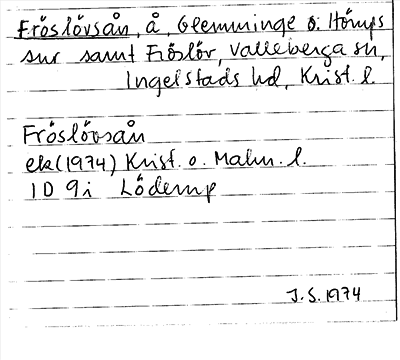 Fröslövsån, å, Glemminge o. Hörups
snr samt Fröslöv, Valleberga sn,
Ingelstads hd, Krist. l.
Fröslövsån
ek (1974) Krist. o. Malm. l.
1D 9i Löderup
J.S. 1974